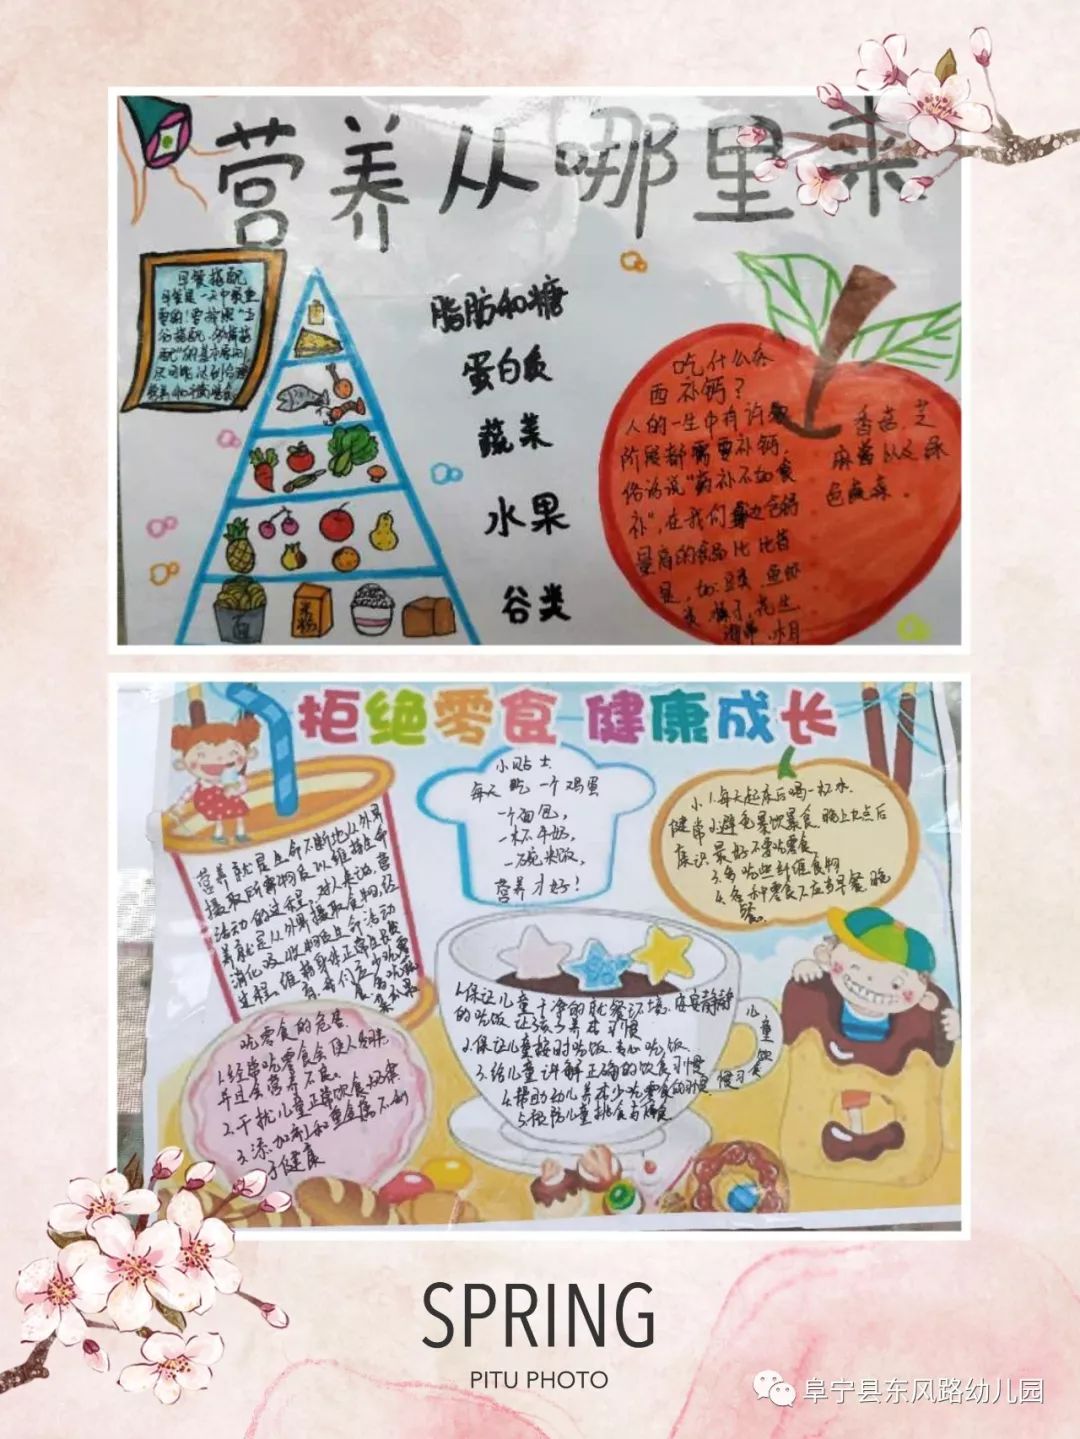 营养从哪里来
早餐搭配
早餐是一天中最重
要的!要按照"五
脂肪和糖
蛋白质
蔬菜
水果
谷类
面
米粉
吃什么东
西补钙?
人的一生中有许多
阶段都需要补钙,
俗话说"药补不如食
补",在我们身边含钙
量高的食品比比皆
是,如:豆类、鱼虾
类、橘子、花生、
香菇、芝
麻酱以及绿
色蔬菜。
拒绝零食 健康成长
营养就是生命不断地从外界
摄取所需物质以维持生命
活动的过程。对人来说,营
养就是从外界摄取食物,经
消化吸收
小贴士
每天吃一个鸡蛋
一个面包,
一杯牛奶,
一碗米饭,
营养才好!
小健康常识
1.每天起床后喝一杯水.
2.避免暴饮暴食.晚上九点后
最好不要吃零食.
3.多吃些纤维食物
4.各种零食不应当早餐晚
餐.
吃零食的危害.
1.经常吃零食会使人发胖.
不过会营养不良.
2.干扰儿童正常饮食
3.添加剂和重金属不利
于健康
1.保证儿童干净的就餐环境.应安静静
的吃饭,让孩子养成习惯
2.保证儿童按时吃饭.专心吃饭.
3.给儿童讲解正确的饮食习惯
4.帮助幼儿养成少吃零食的习惯.
5.预防儿童挑食与偏食
儿童饮食习惯
SPRING
PITU PHOTO
阜宁县东风路幼儿园